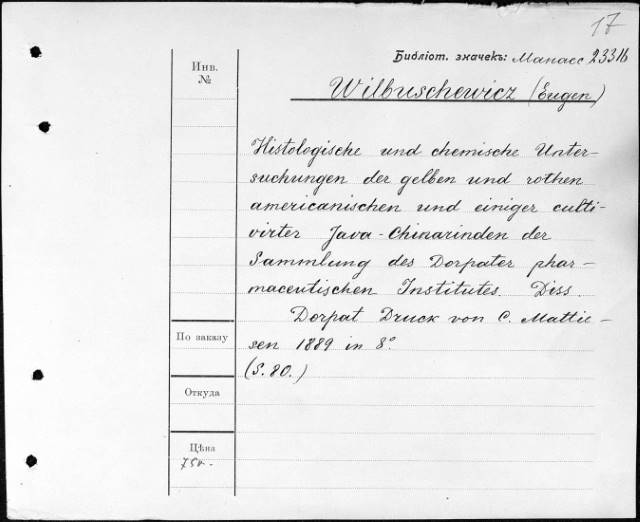 17
Библіот. значекъ: Манасс 23316
Инв.
№
Wilbuschewicz (Eugen)
Histologische und chemische Unter-
suchungen der gelben und rothen
americanischen und einiger culti-
virter Java-Chinarinden der
Sammlung des Dorpater phar-
maceutischen Institutes. Diss.
Dorpat Druck von C. Mattie-
sen 1889 in 8°.
(S. 80.)
По заказу
Откуда
Цѣна